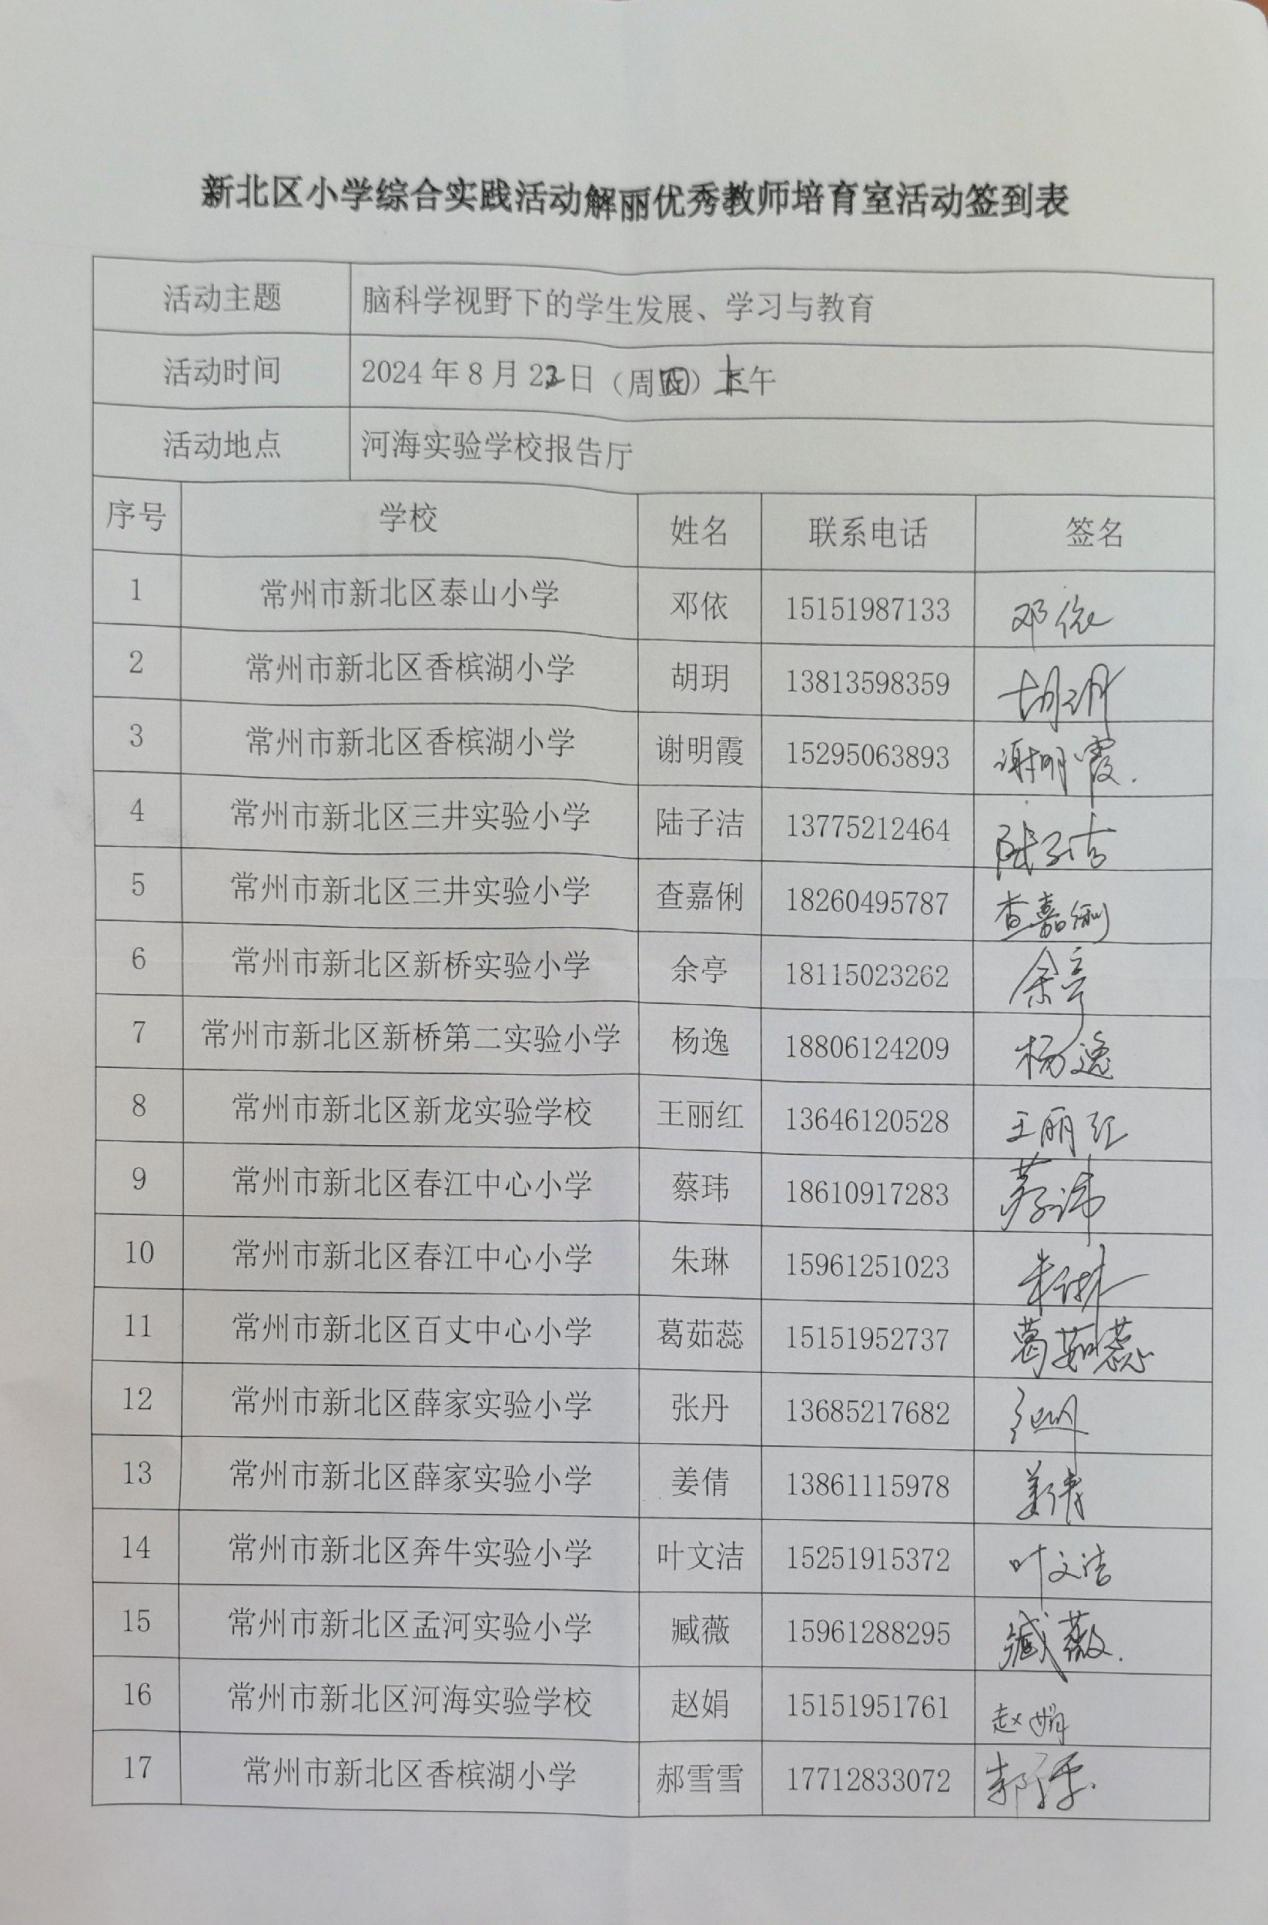 新北区小学综合实践活动解丽优秀教师培育室活动签到表
活动主题 脑科学视野下的学生发展、学习与教育
活动时间 2024年8月22日（周四）上午
活动地点 河海实验学校报告厅
序号 学校 姓名 联系电话 签名
1 常州市新北区泰山小学 邓依 15151987133 邓依
2 常州市新北区香槟湖小学 胡玥 13813598359 胡玥
3 常州市新北区香槟湖小学 谢明霞 15295063893 谢明霞.
4 常州市新北区三井实验小学 陆子洁 13775212464 陆子洁
5 常州市新北区三井实验小学 查嘉俐 18260495787 查嘉俐
6 常州市新北区新桥实验小学 余亭 18115023262 余亭
7 常州市新北区新桥第二实验小学 杨逸 18806124209 杨逸
8 常州市新北区新龙实验学校 王丽红 13646120528 王丽红
9 常州市新北区春江中心小学 蔡玮 18610917283 蔡玮
10 常州市新北区春江中心小学 朱琳 15961251023 朱琳
11 常州市新北区百丈中心小学 葛茹蕊 15151952737 葛茹蕊
12 常州市新北区薛家实验小学 张丹 13685217682 张丹
13 常州市新北区薛家实验小学 姜倩 13861115978 姜倩
14 常州市新北区奔牛实验小学 叶文洁 15251915372 叶文洁
15 常州市新北区孟河实验小学 臧薇 15961288295 臧薇.
16 常州市新北区河海实验学校 赵娟 15151951761 赵娟
17 常州市新北区香槟湖小学 郝雪雪 17712833072